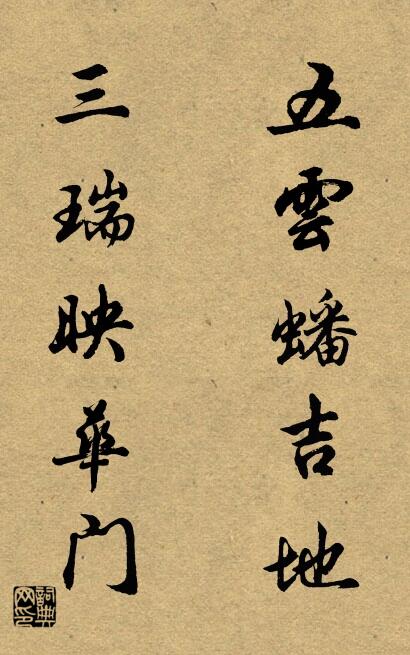 五雲蟠吉地
三瑞映華门
詞典网印